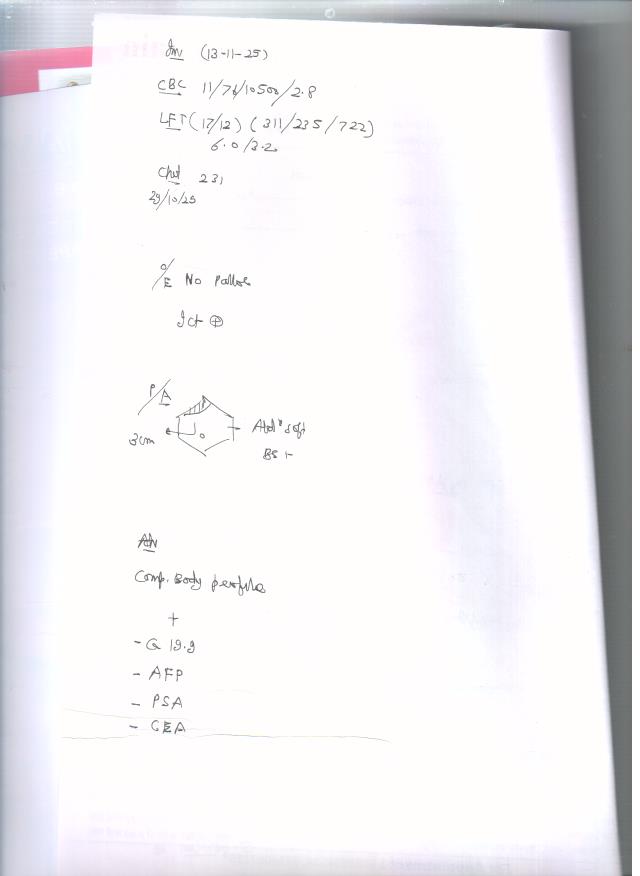 Inv (13-11-25)
CBC 11/76/10500/2.8
LFT (17/12) (311/235/722)
6.0/3.2
Chol 231
29/10/25
O/E No Pallor
Ict ⊕
P/A
3cm
Abd° soft
BS +
Adv
Comp. Body profile
+
- Ca 19.9
- AFP
- PSA
- CEA